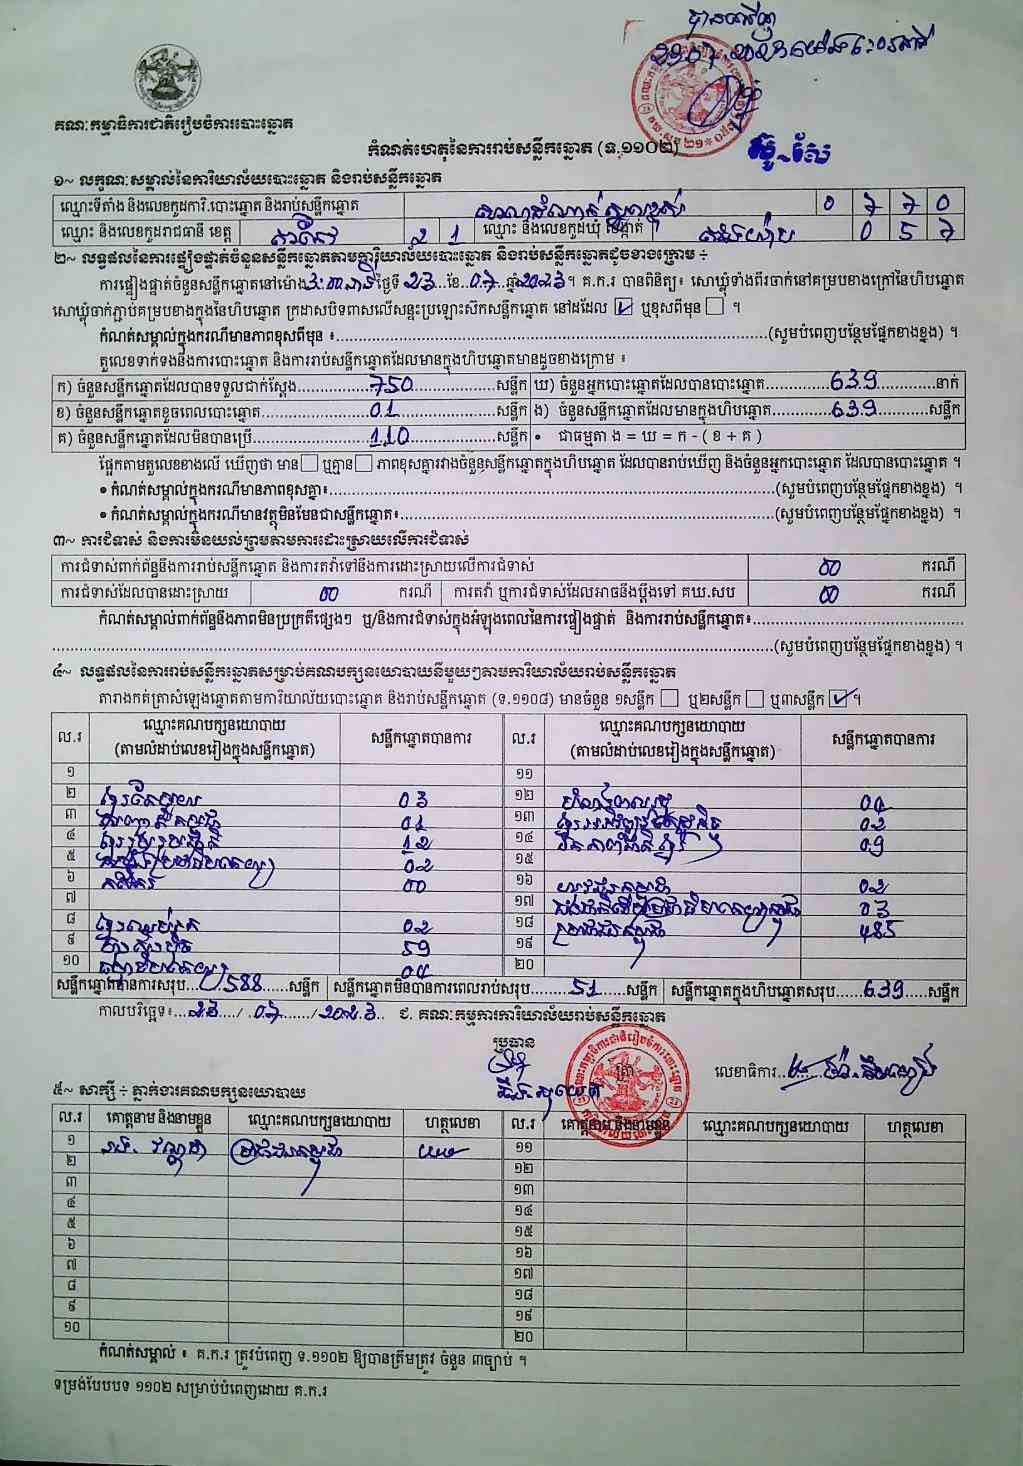 គណៈកម្មាធិការជាតិរៀបចំការបោះឆ្នោត
កំណត់ហេតុនៃការរាប់សន្លឹកឆ្នោត (ទ.១១០២)
១~ លក្ខណៈសម្គាល់នៃការិយាល័យបោះឆ្នោត និងរាប់សន្លឹកឆ្នោត
ឈ្មោះទីតាំង និងលេខកូដការិ.បោះឆ្នោត និងរាប់សន្លឹកឆ្នោត 0 7 7 0
ឈ្មោះ និងលេខកូដរាជធានី ខេត្ត តាកែវ 2 1 ឈ្មោះ និងលេខកូដឃុំ សង្កាត់ 0 5 7
២~ លទ្ធផលនៃការផ្ទៀងផ្ទាត់ចំនួនសន្លឹកឆ្នោតតាមការិយាល័យបោះឆ្នោត និងរាប់សន្លឹកឆ្នោតដូចខាងក្រោម ÷
ការផ្ទៀងផ្ទាត់ចំនួនសន្លឹកឆ្នោតនៅម៉ោង 3:00 នាទី ថ្ងៃទី 23 ខែ 07 ឆ្នាំ 2023 ។ គ.ក.រ បានពិនិត្យ៖ សោឃ្លុំទាំងពីរចាក់នៅគម្របខាងក្រៅនៃហិបឆ្នោត
សោឃ្លុំចាក់ភ្ជាប់គម្របខាងក្នុងនៃហិបឆ្នោត ក្រដាសបិទពាសលើសន្ទះប្រឡោះស៊កសន្លឹកឆ្នោត នៅដដែល ☑ ឬខុសពីមុន ☐ ។
កំណត់សម្គាល់ក្នុងករណីមានភាពខុសពីមុន ៖ (សូមបំពេញបន្ថែមផ្នែកខាងខ្នង) ។
តួលេខទាក់ទងនឹងការបោះឆ្នោត និងការរាប់សន្លឹកឆ្នោតដែលមានក្នុងហិបឆ្នោតមានដូចខាងក្រោម ៖
ក) ចំនួនសន្លឹកឆ្នោតដែលបានទទួលជាក់ស្តែង 750 សន្លឹក ឃ) ចំនួនអ្នកបោះឆ្នោតដែលបានបោះឆ្នោត 639 នាក់
ខ) ចំនួនសន្លឹកឆ្នោតខូចពេលបោះឆ្នោត 01 សន្លឹក ង) ចំនួនសន្លឹកឆ្នោតដែលមានក្នុងហិបឆ្នោត 639 សន្លឹក
គ) ចំនួនសន្លឹកឆ្នោតដែលមិនបានប្រើ 110 សន្លឹក • ជាធម្មតា ង = ឃ = ក - ( ខ + គ )
ផ្អែកតាមតួលេខខាងលើ ឃើញថា មាន ☐ ឬគ្មាន ☐ ភាពខុសគ្នារវាងចំនួនសន្លឹកឆ្នោតក្នុងហិបឆ្នោត ដែលបានរាប់ឃើញ និងចំនួនអ្នកបោះឆ្នោត ដែលបានបោះឆ្នោត ។
• កំណត់សម្គាល់ក្នុងករណីមានភាពខុសគ្នា៖ (សូមបំពេញបន្ថែមផ្នែកខាងខ្នង) ។
• កំណត់សម្គាល់ក្នុងករណីមានវត្ថុមិនមែនជាសន្លឹកឆ្នោត៖ (សូមបំពេញបន្ថែមផ្នែកខាងខ្នង) ។
៣~ ការជំទាស់ និងការមិនយល់ព្រមតាមការដោះស្រាយលើការជំទាស់
ការជំទាស់ពាក់ព័ន្ធនឹងការរាប់សន្លឹកឆ្នោត និងការតវ៉ាទៅនឹងការដោះស្រាយលើការជំទាស់ 00 ករណី
ការជំទាស់ដែលបានដោះស្រាយ 00 ករណី ការតវ៉ា ឬការជំទាស់ដែលអាចនឹងប្តឹងទៅ គឃ.សប 00 ករណី
កំណត់សម្គាល់ពាក់ព័ន្ធនឹងភាពមិនប្រក្រតីផ្សេងៗ ឬ/និងការជំទាស់ក្នុងអំឡុងពេលនៃការផ្ទៀងផ្ទាត់ និងការរាប់សន្លឹកឆ្នោត៖
(សូមបំពេញបន្ថែមផ្នែកខាងខ្នង) ។
៤~ លទ្ធផលនៃការរាប់សន្លឹកឆ្នោតសម្រាប់គណបក្សនយោបាយនីមួយៗតាមការិយាល័យរាប់សន្លឹកឆ្នោត
តារាងកត់ត្រាសំឡេងឆ្នោតតាមការិយាល័យបោះឆ្នោត និងរាប់សន្លឹកឆ្នោត (ទ.១១០៨) មានចំនួន ១សន្លឹក ☐ ឬ២សន្លឹក ☐ ឬ៣សន្លឹក ☑ ។
ល.រ ឈ្មោះគណបក្សនយោបាយ (តាមលំដាប់លេខរៀងក្នុងសន្លឹកឆ្នោត) សន្លឹកឆ្នោតបានការ ល.រ ឈ្មោះគណបក្សនយោបាយ (តាមលំដាប់លេខរៀងក្នុងសន្លឹកឆ្នោត) សន្លឹកឆ្នោតបានការ
១ ១១
២ ខ្មែរតែមួយ 03 ១២ 04
៣ 01 ១៣ 02
៤ ខ្មែររួបរួមជាតិ 12 ១៤ 09
៥ 02 ១៥
៦ កសិករ 00 ១៦ 02
៧ ១៧ 03
៨ ខ្មែរឈប់ក្រ 02 ១៨ ប្រជាជនកម្ពុជា 485
៩ 59 ១៩
១០ 04 ២០
សន្លឹកឆ្នោតបានការសរុប 588 សន្លឹក សន្លឹកឆ្នោតមិនបានការពេលរាប់សរុប 51 សន្លឹក សន្លឹកឆ្នោតក្នុងហិបឆ្នោតសរុប 639 សន្លឹក
កាលបរិច្ឆេទ៖ 23 / 07 / 2023 ជ. គណៈកម្មការការិយាល័យរាប់សន្លឹកឆ្នោត
ប្រធាន
លេខាធិការ
៥~ សាក្សី ÷ ភ្នាក់ងារគណបក្សនយោបាយ
ល.រ គោត្តនាម និងនាមខ្លួន ឈ្មោះគណបក្សនយោបាយ ហត្ថលេខា ល.រ គោត្តនាម និងនាមខ្លួន ឈ្មោះគណបក្សនយោបាយ ហត្ថលេខា
១ ប្រជាជនកម្ពុជា ១១
២ ១២
៣ ១៣
៤ ១៤
៥ ១៥
៦ ១៦
៧ ១៧
៨ ១៨
៩ ១៩
១០ ២០
កំណត់សម្គាល់ ៖ គ.ក.រ ត្រូវបំពេញ ទ.១១០២ ឱ្យបានត្រឹមត្រូវ ចំនួន ៣ច្បាប់ ។
ទម្រង់បែបបទ ១១០២ សម្រាប់បំពេញដោយ គ.ក.រ